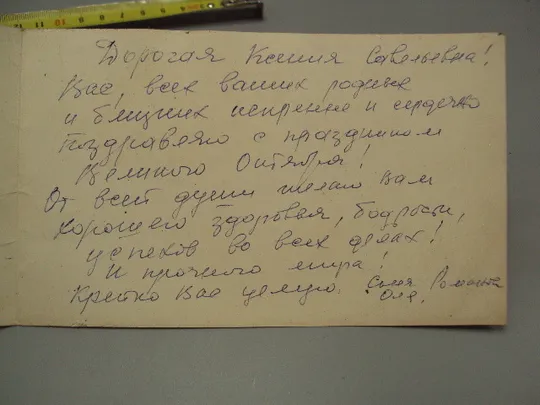 Дорогая Ксения Савельевна!
Вас, всех ваших родных
и близких искренне и сердечно
поздравляю с праздником
Великого Октября!
От всей души желаю Вам
хорошего здоровья, бодрости,
успехов во всех делах!
И прочного мира!
Крепко Вас целую.
Оля.